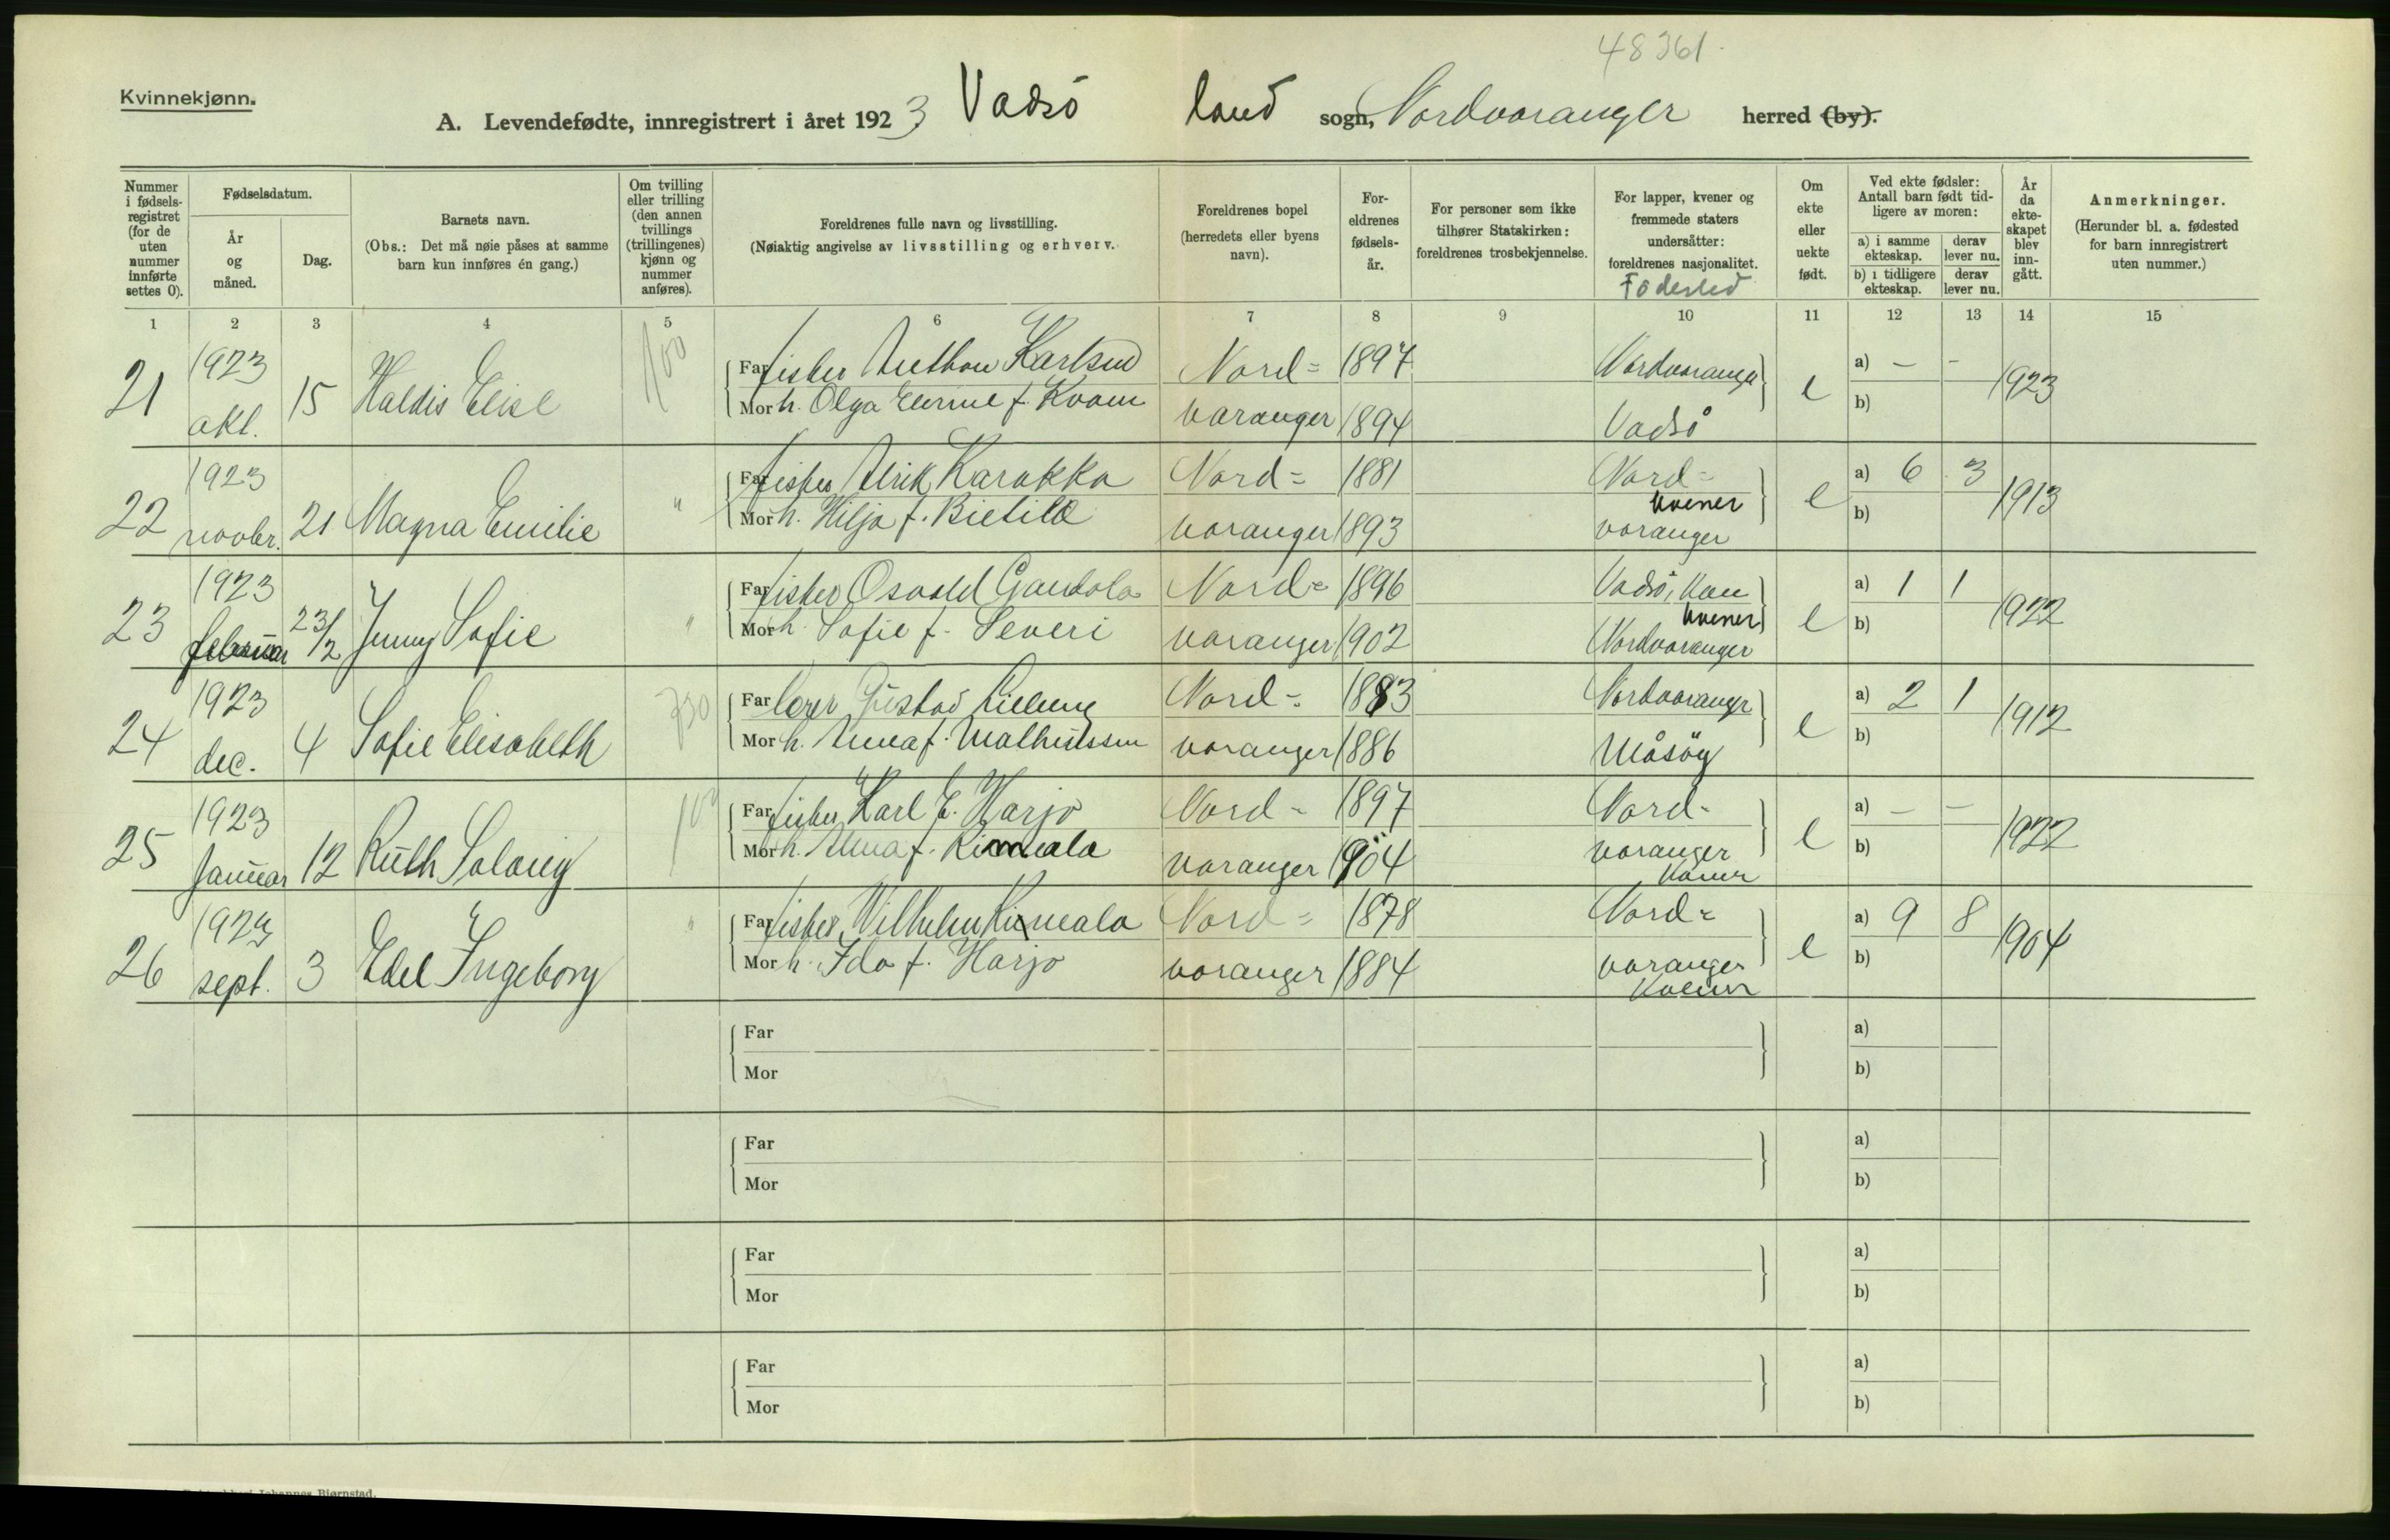 48361.
Kvinnekjønn.
A. Levendefødte, innregistrert i året 1923 Vadsö land sogn, Nordvaranger herred (by).
Nummer i fødsels-registret (for de uten nummer innførte settes 0).
Fødselsdatum.
År og måned.
Dag.
Barnets navn.
(Obs.: Det må nøie påses at samme barn kun innføres én gang.)
Om tvilling eller trilling (den annen tvillings (trillingenes) kjønn og nummer anføres).
Foreldrenes fulle navn og livsstilling.
(Nøiaktig angivelse av livsstilling og erhverv.
Foreldrenes bopel (herredets eller byens navn).
For-eldrenes fødsels-år.
For personer som ikke tilhører Statskirken: foreldrenes trosbekjennelse.
For lapper, kvener og fremmede staters undersåtter: foreldrenes nasjonalitet.
Födested
Om ekte eller uekte født.
Ved ekte fødsler: Antall barn født tid-ligere av moren:
a) i samme ekteskap. derav lever nu.
b) i tidligere ekteskap. derav lever nu.
År da ekte-skapet blev inn-gått.
Anmerkninger.
(Herunder bl. a. fødested for barn innregistrert uten nummer.)
1 2 3 4 5 6 7 8 9 10 11 12 13 14 15
21 1923 okt. 15 Haldis Elise 1100
Far fisker Anthon Karlsen Nord= 1897 Nordvaranger e a) — - 1923
Mor h. Olga f. Kvam varanger 1894 Vadsö b)
22 1923 novbr. 21 Magna Emilie "
Far fisker Ulrik Karakka Nord= 1881 Nord- kvener e a) 6 3 1913
Mor h. Hilja f. Bietilæ varanger 1893 varanger b)
23 1923 februar 23/2 Jenny Sofie "
Far fisker Osvald Gandola Nord= 1896 Vadsö, kvener e a) 1 1 1922
Mor h. Sofie f. Severi varanger 1902 Nordvaranger b)
24 1923 dec. 4 Sofie Elisabeth 730
Far Gustav Nord= 1883 Nordvaranger e a) 2 1 1912
Mor h. Anna f. Mathisen varanger 1886 Måsöy b)
25 1923 Januar 12 Ruth Solveig
Far fisker Karl E. Harjo Nord- 1897 Nord- e a) — — 1922
Mor h. Anna f. Kinnala varanger 1904 varanger b)
26 1923 sept. 3 Edel Ingeborg "
Far fisker Wilhelm Kinnala Nord= 1878 Nord= e a) 9 8 1904
Mor h. Ida f. Harjo varanger 1884 varanger Kvener b)
Far a)
Mor b)
Far a)
Mor b)
Far a)
Mor b)
Far a)
Mor b)
Johannes Bjørnstad.